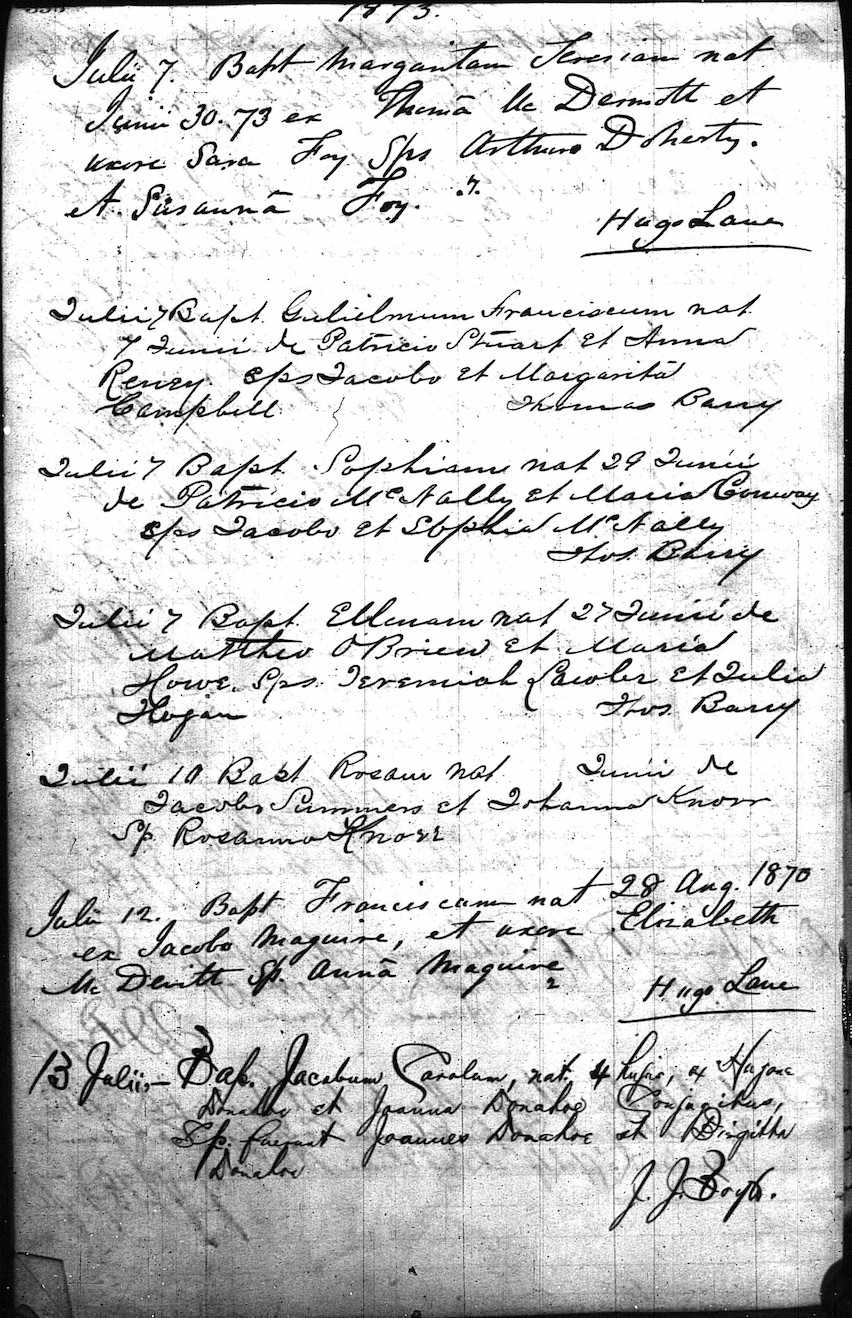 1873.
Julii 7. Bapt Margaritam Teresiam nat
Junii 30.73 ex Thomâ Mc Dermott et
uxore Sara Foy Sps Arthuro Doherty.
et Susannâ Foy.
Hugo Lane
Julii 7 Bapt. Gulielmum Franciscum nat
7 Junii de Patricio Stuart et Anna
Reney. sps Jacobo et Margaritâ
Campbell Thomas Barry
Julii 7 Bapt. Sophiam nat 29 Junii
de Patricio McNally et Maria Conway
sps Jacobo et Sophia McNally
Thos. Barry
Julii 7 Bapt. Ellenam nat 27 Junii de
Mattheo O'Brien et Maria
Howe. Sps. Jeremiah Lawler et Julia
Hogan Thos. Barry
Julii 10 Bapt Rosam nat Junii de
Jacobo Summers et Johanna Knorr
Sp. Rosanna Knorr
Julii 12. Bapt Franciscam nat 28 Aug. 1870
ex Jacobo Maguire, et uxore Elizabeth
Mc Devitt Sp. Annâ Maguire
Hugo Lane
13 Julii,- Bap. Jacobum Carolum, nat. 4 hujus, ex Hugone
Donahoe et Joanna Donahoe Conjugibus,
Sp. fuerunt Joannes Donahoe et Birgitta
Donahoe
J. J.